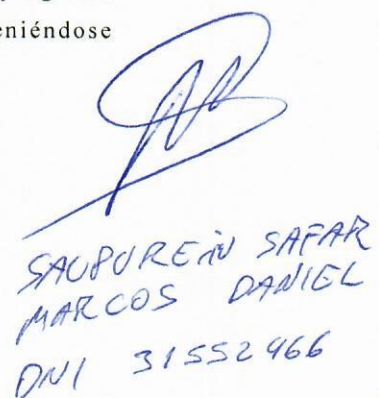 eniéndose
SAUPUREIN SAFAR
MARCOS DANIEL
DNI 31552466